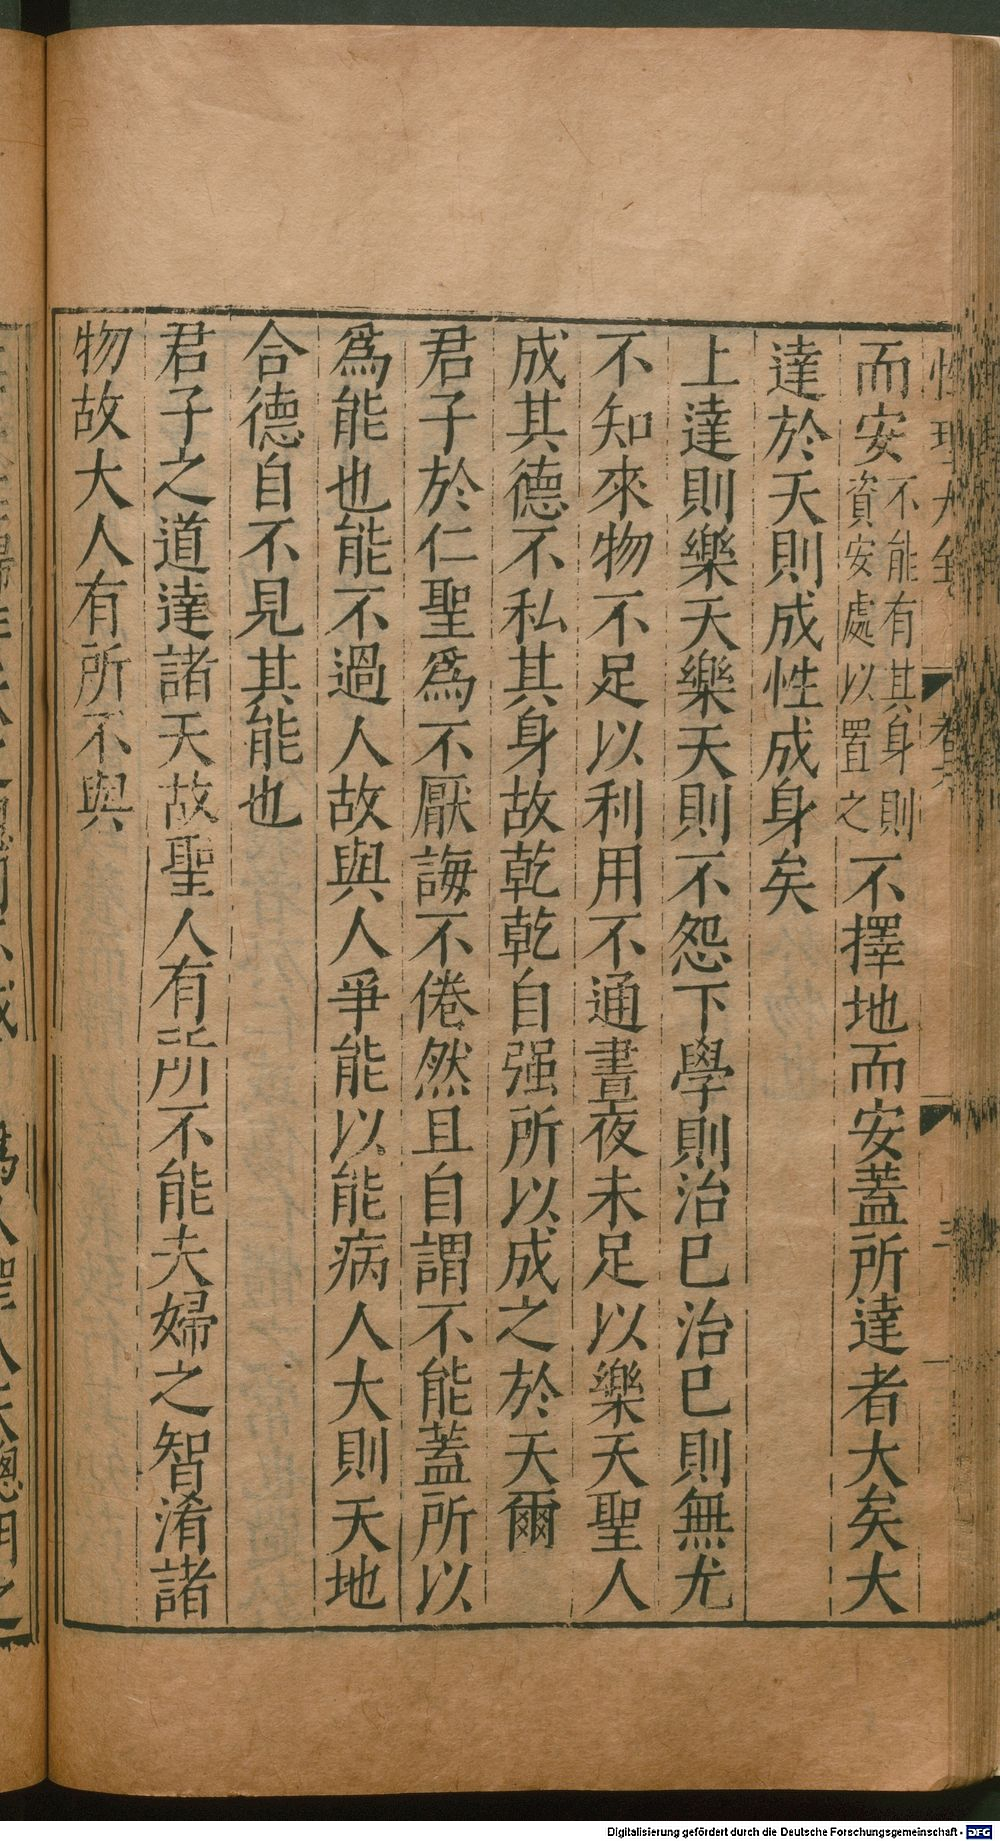 性理大全 卷六 三
而安不能有其身則資安處以置之不擇地而安蓋所達者大矣大
達於天則成性成身矣
上達則樂天樂天則不怨下學則治已治已則無尤
不知來物不足以利用不通晝夜未足以樂天聖人
成其德不私其身故乾乾自强所以成之於天爾
君子於仁聖爲不厭誨不倦然且自謂不能蓋所以
爲能也能不過人故與人爭能以能病人大則天地
合德自不見其能也
君子之道達諸天故聖人有所不能夫婦之智淆諸
物故大人有所不與
Digitalisierung gefördert durch die Deutsche Forschungsgemeinschaft - DFG